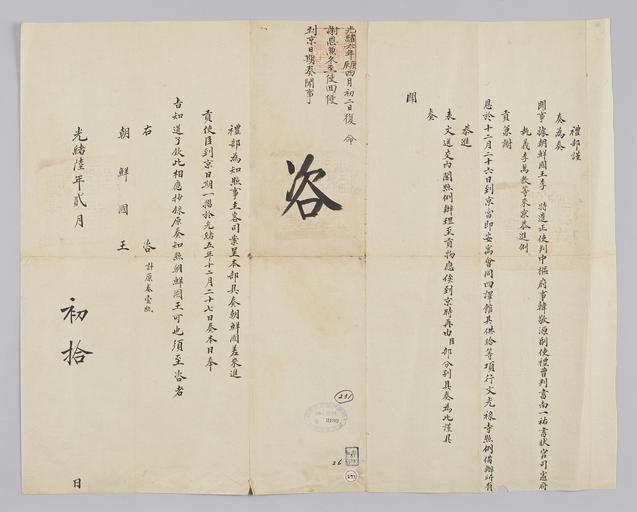 禮部謹
奏為奏
聞事據朝鮮國王李 特遣正使判中樞府事韓敬源副使禮曹判書南一祐書狀官司憲府
執義李萬教等來京恭進例
貢兼謝
恩於十二月二十六日到京當即安寓會同四譯館其供給等項行文光祿寺照例備辦所有
恭進
表文送交內閣照例辦理至貢物應俟到京時再由臣部分別具奏為此謹具
奏
聞
光緒六年 四月初二日復 命
謝恩兼冬至使回便
到京日期奏聞事
咨
禮部為知照事主客司案呈本部具奏朝鮮國差來進
貢使臣到京日期一摺於光緒五年十二月二十七日奏本日奉
旨知道了欽此相應抄錄原奏知照朝鮮國王可也須至咨者
右 咨 計原奏壹紙
朝鮮國王
光緒陸年貳月 初拾 日
231
26